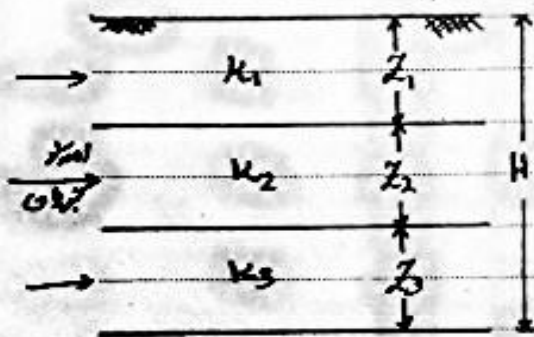 K₁ Z₁
H
K₂ Z₂
K₃ Z₃